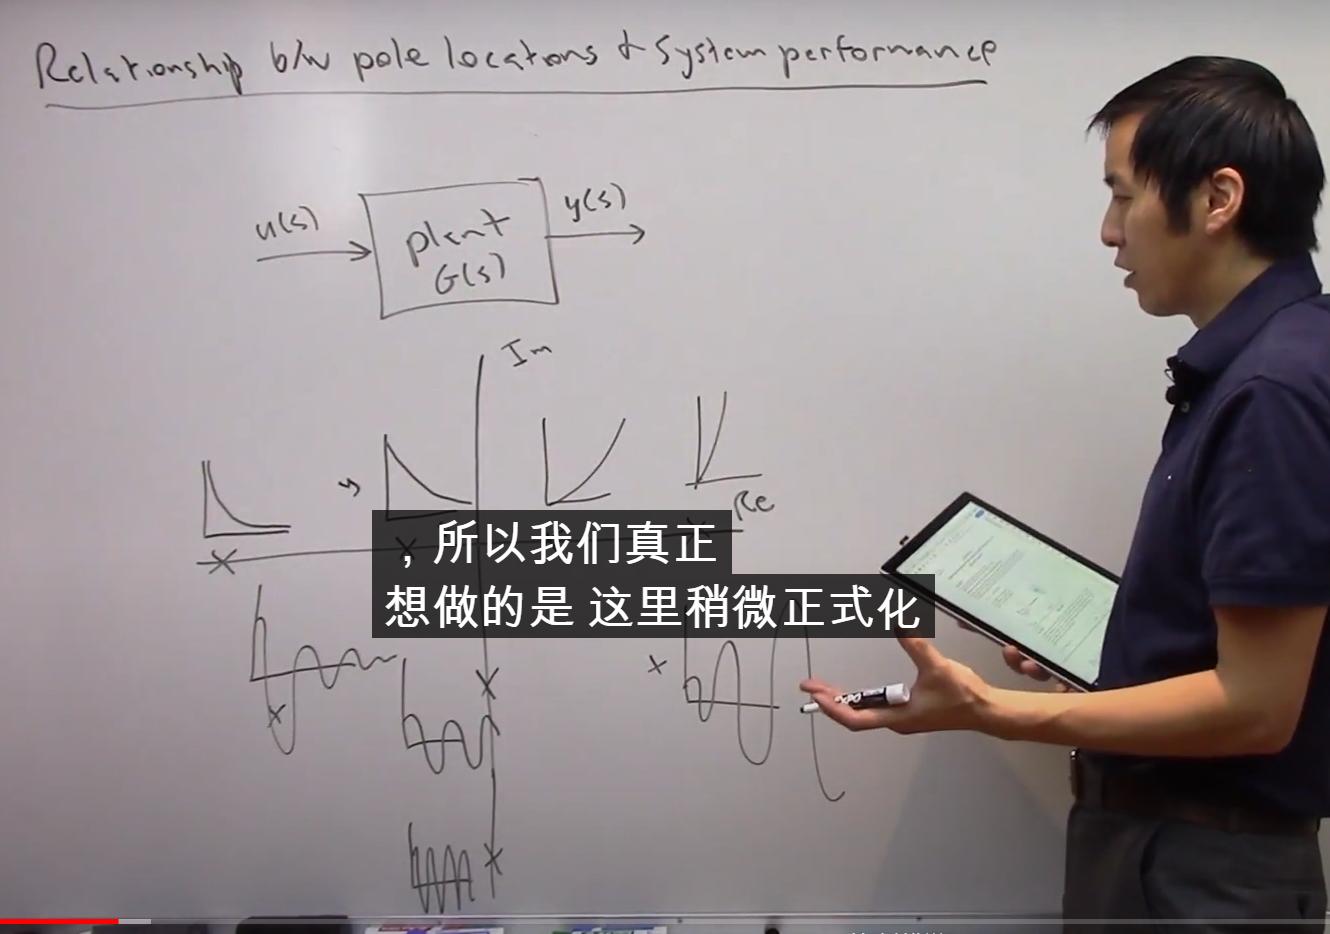 Relationship b/w pole locations & System performance
u(s)
plant
G(s)
y(s)
Im
Re
，所以我们真正
想做的是 这里稍微正式化